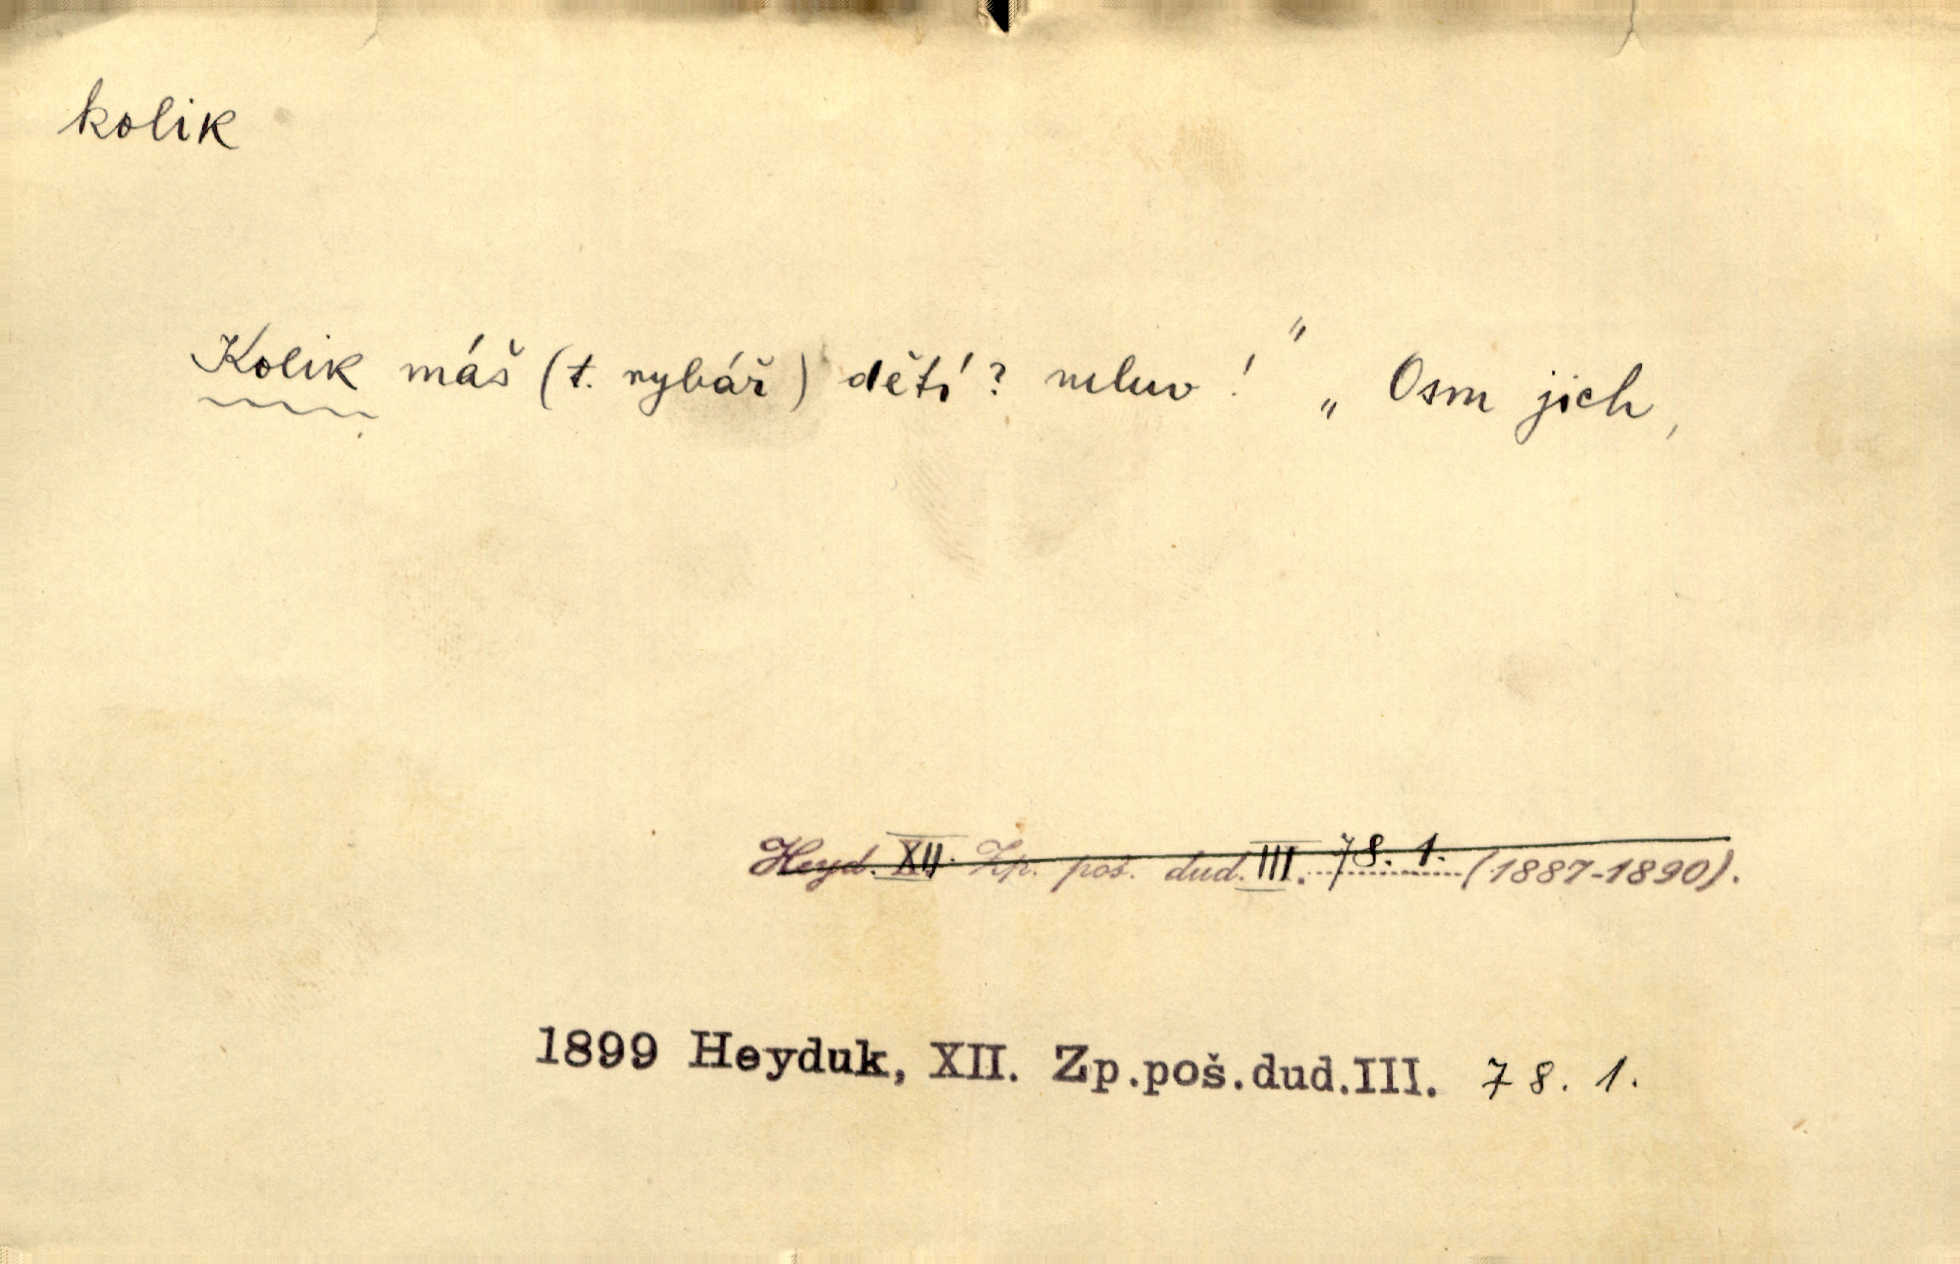 kolik
Kolik máš (t. rybář) dětí? mluv!" „Osm jich,
Heyd. XII. Zp. poš. dud. III. 78. 1. (1887-1890).
1899 Heyduk, XII. Zp.poš.dud.III. 78. 1.